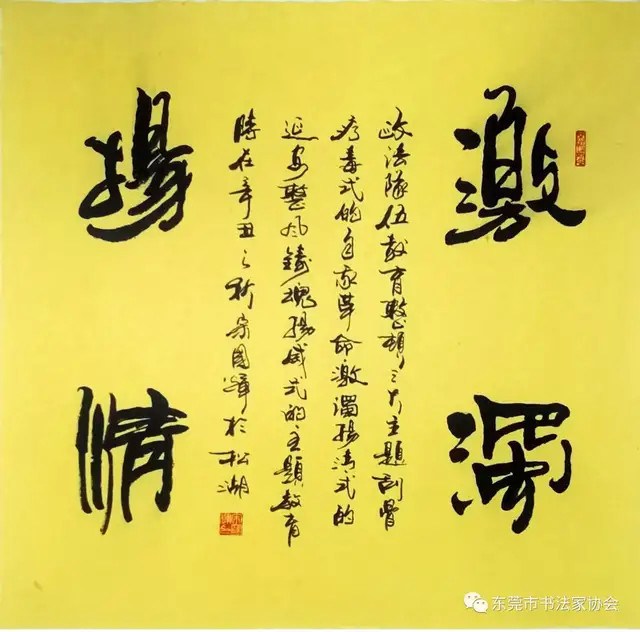 激濁
政法隊伍教育整頓三大主題刮骨
疗毒式的自我革命激濁揚清式的
延安整风鑄魂揚威式的主題教育
時在辛丑之秋宗國於松湖
揚清
东莞市书法家协会